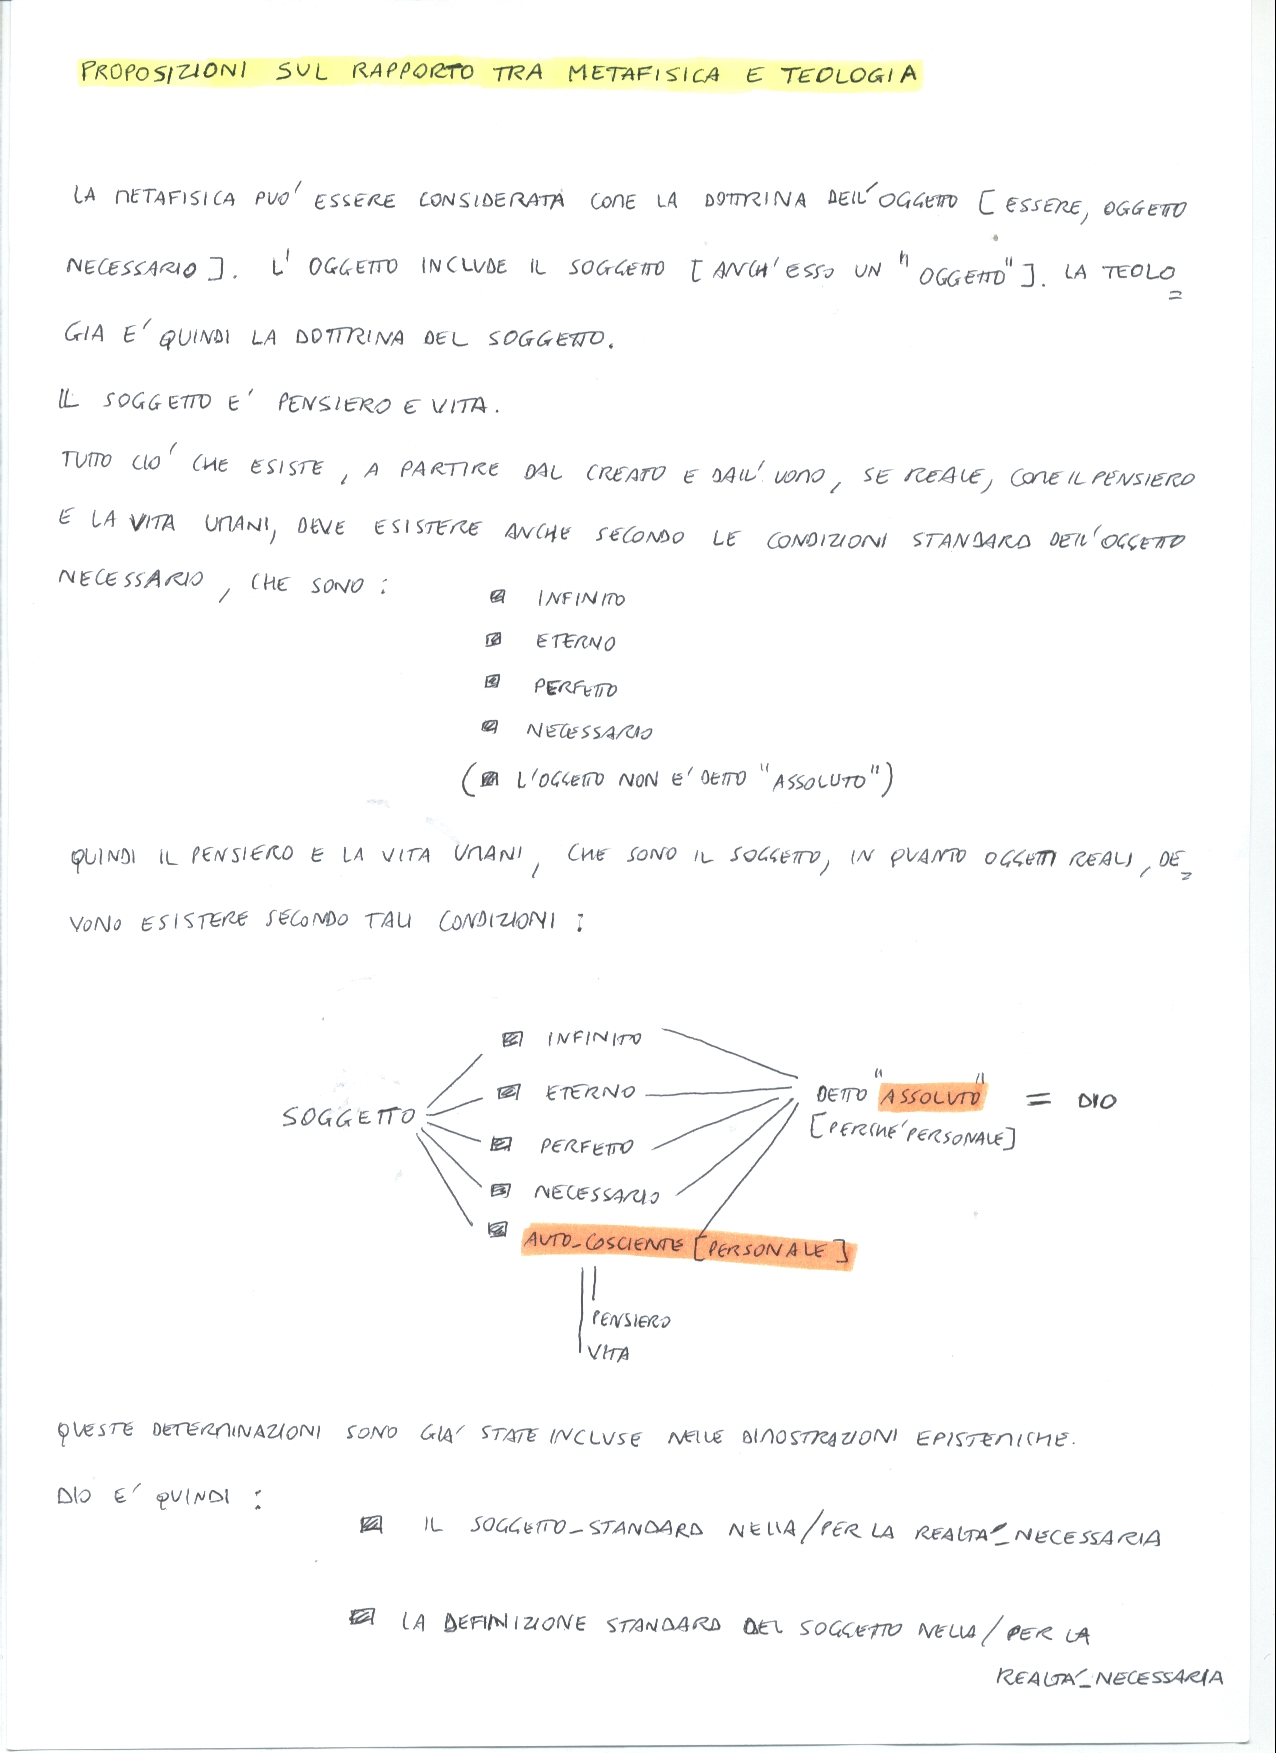 PROPOSIZIONI SUL RAPPORTO TRA METAFISICA E TEOLOGIA
LA METAFISICA PUO' ESSERE CONSIDERATA COME LA DOTTRINA DELL'OGGETTO [ESSERE, OGGETTO
NECESSARIO]. L'OGGETTO INCLUDE IL SOGGETTO [ANCH'ESSO UN "OGGETTO"]. LA TEOLO=
GIA E' QUINDI LA DOTTRINA DEL SOGGETTO.
IL SOGGETTO E' PENSIERO E VITA.
TUTTO CIO' CHE ESISTE, A PARTIRE DAL CREATO E DALL'UOMO, SE REALE, COME IL PENSIERO
E LA VITA UMANI, DEVE ESISTERE ANCHE SECONDO LE CONDIZIONI STANDARD DELL'OGGETTO
NECESSARIO, CHE SONO:
INFINITO
ETERNO
PERFETTO
NECESSARIO
(L'OGGETTO NON E' DETTO "ASSOLUTO")
QUINDI IL PENSIERO E LA VITA UMANI, CHE SONO IL SOGGETTO, IN QUANTO OGGETTI REALI, DE=
VONO ESISTERE SECONDO TALI CONDIZIONI:
SOGGETTO
INFINITO
ETERNO
PERFETTO
NECESSARIO
AUTO_COSCIENTE [PERSONALE]
PENSIERO
VITA
DETTO "ASSOLUTO" = DIO
[PERCHE' PERSONALE]
QUESTE DETERMINAZIONI SONO GIA' STATE INCLUSE NELLE DIMOSTRAZIONI EPISTEMICHE.
DIO E' QUINDI:
IL SOGGETTO_STANDARD NELLA/PER LA REALTA'_NECESSARIA
LA DEFINIZIONE STANDARD DEL SOGGETTO NELLA/PER LA
REALTA'_NECESSARIA